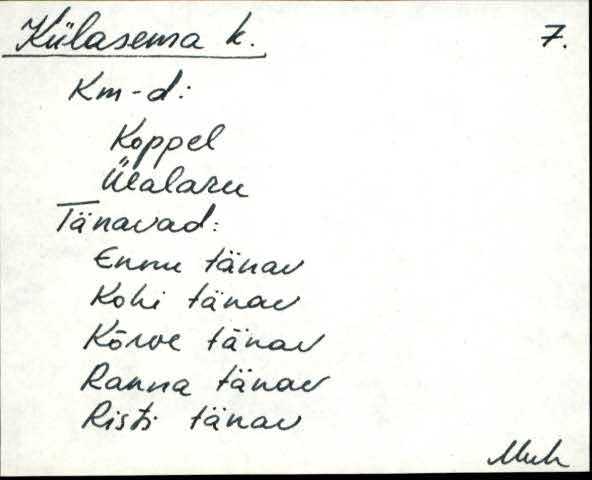 Külasema k. 7.
Km-d:
Koppel
Tänavad:
Ennu tänav
Kohi tänav
Kõrve tänav
Ranna tänav
Risti tänav
Muh